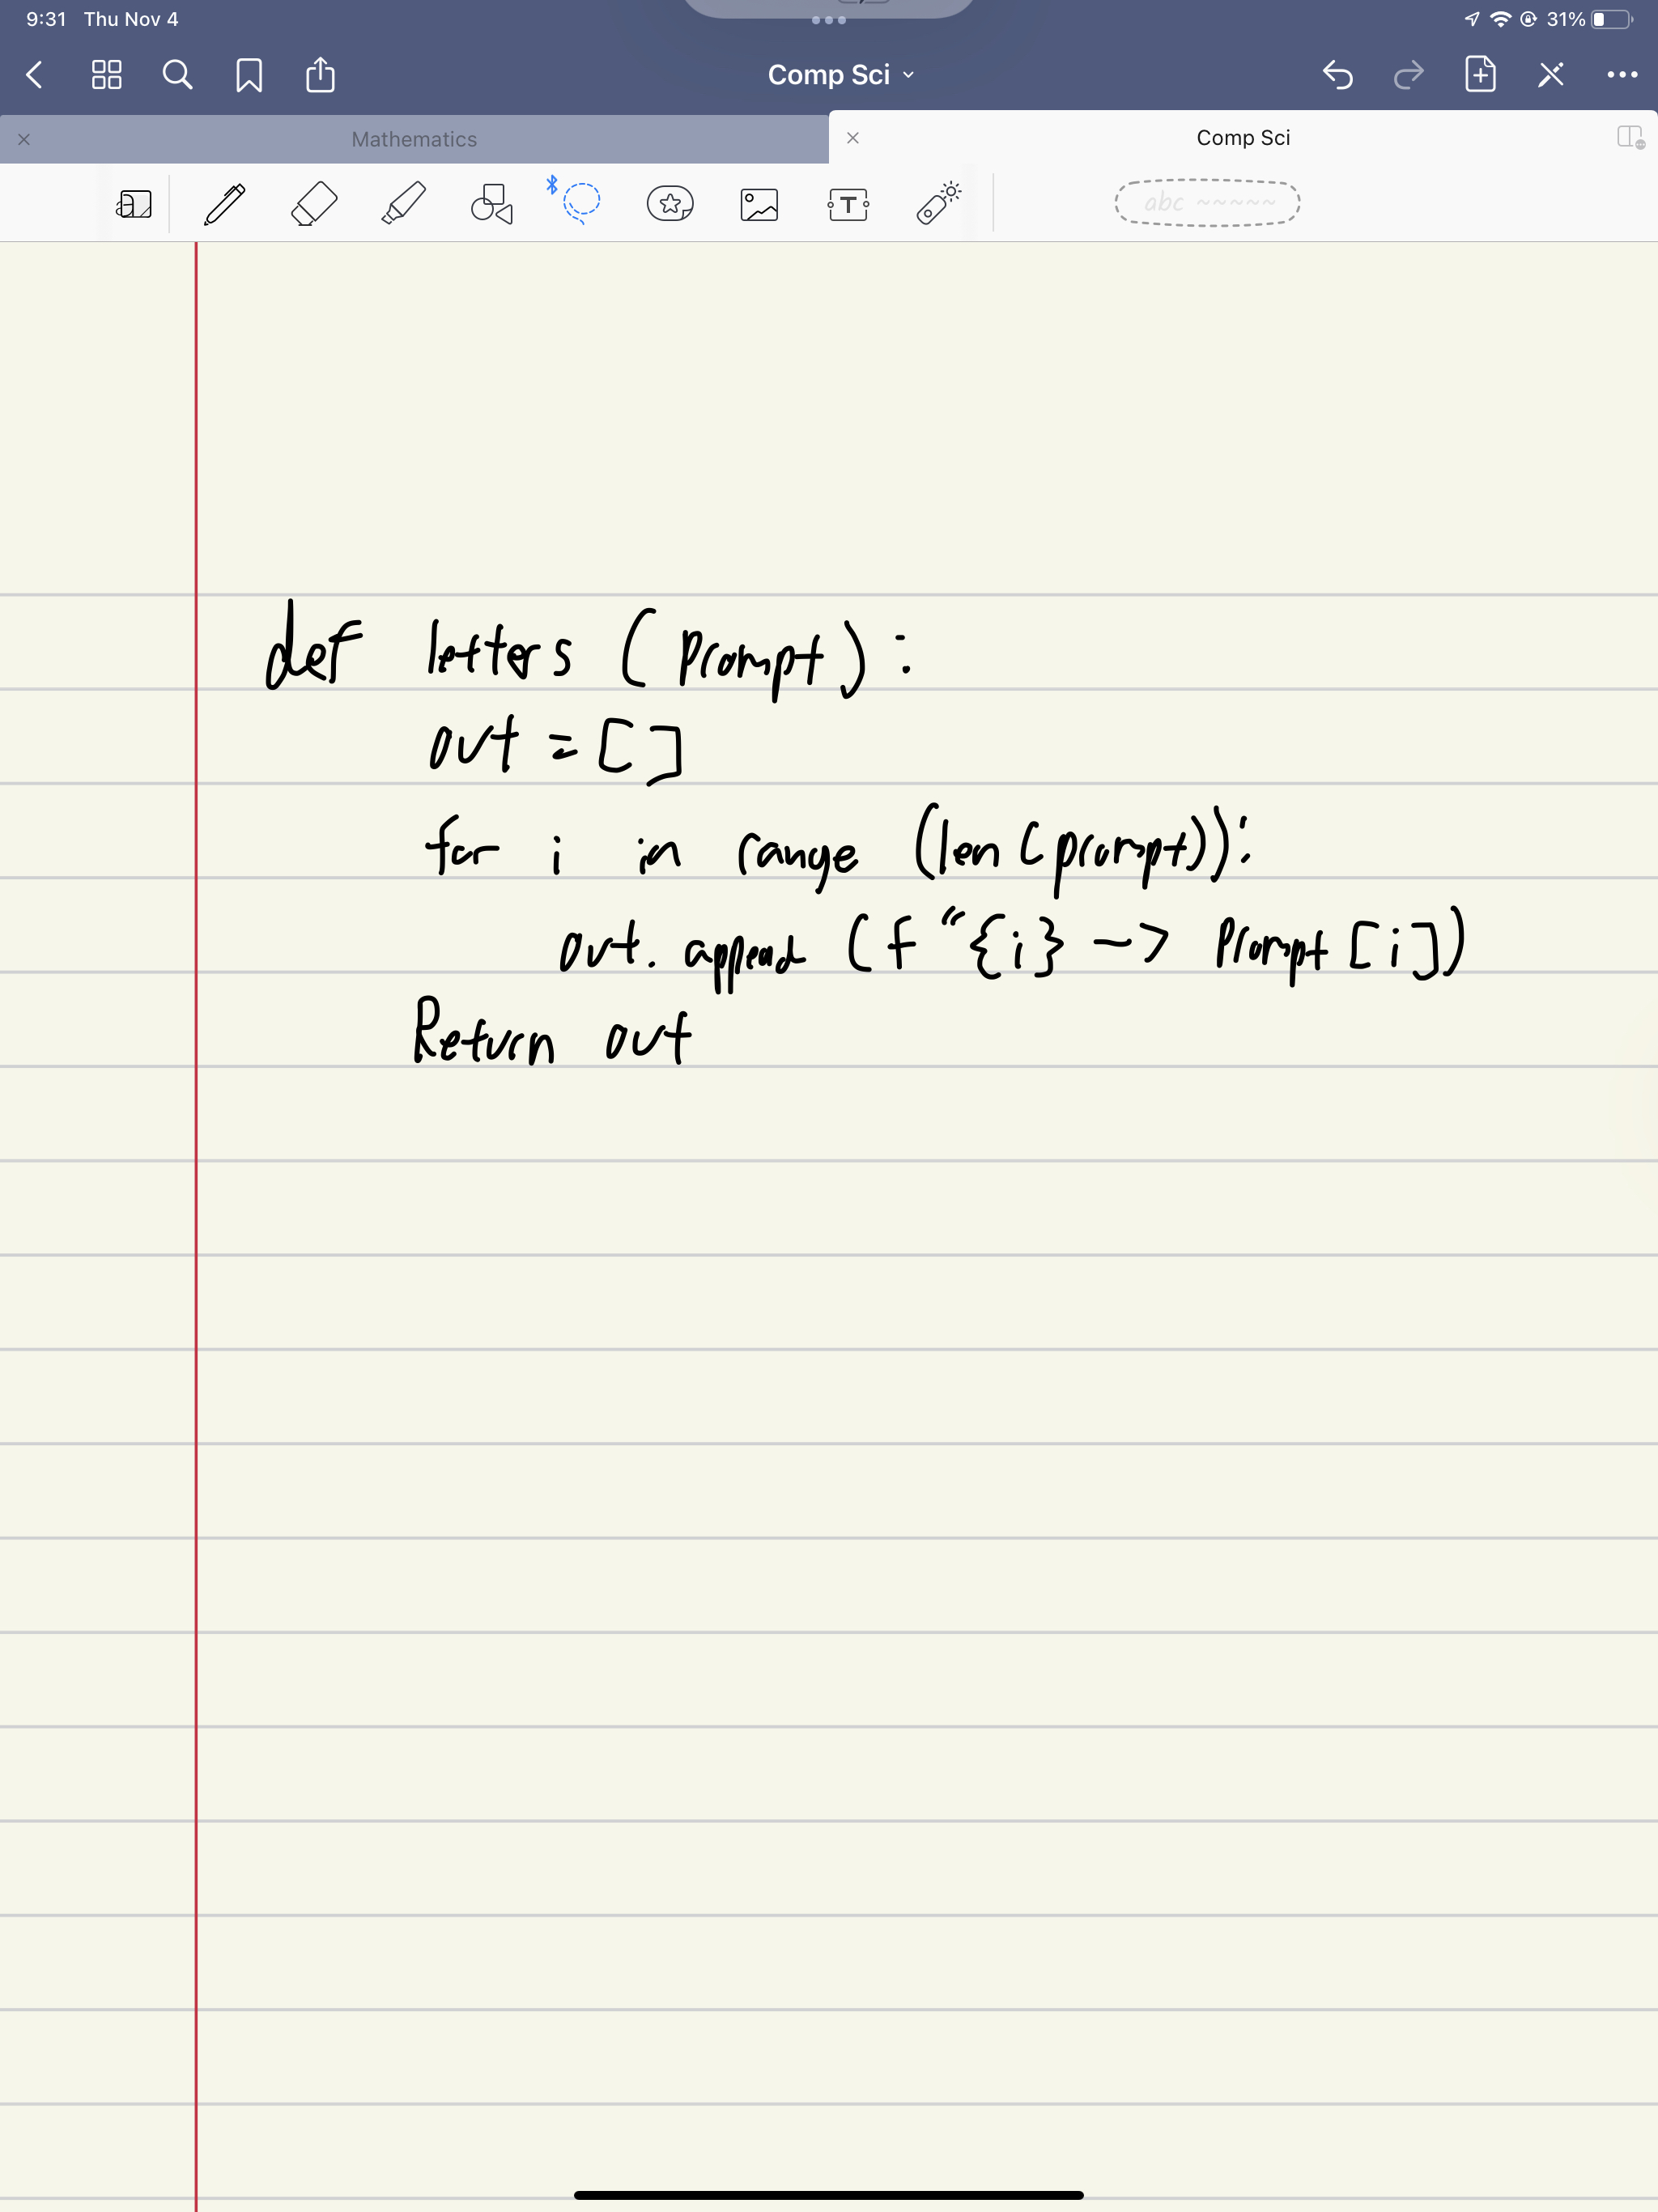 9:31 Thu Nov 4 31%
Comp Sci
Mathematics Comp Sci
abc
def letters (Prompt):
out = []
for i in range (len (prompt)):
out. append (f "{i} -> Prompt [i])
Return out